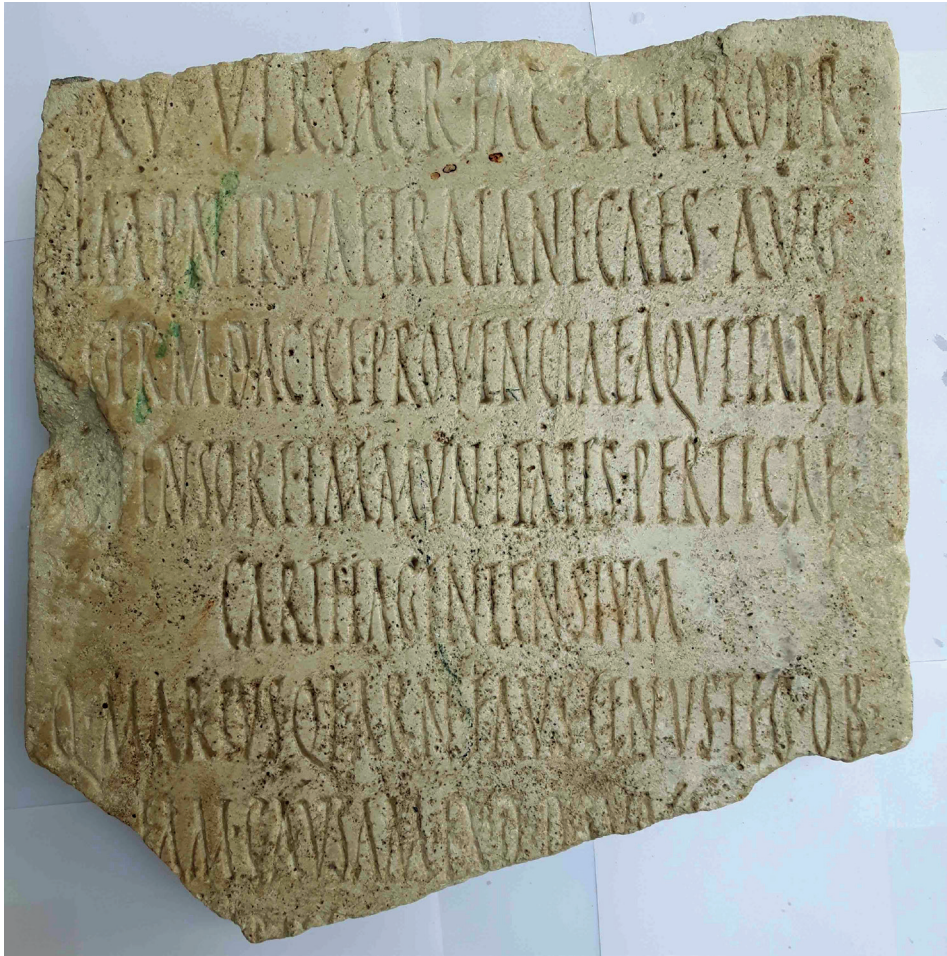 XV · VIR · SACR · FAC · LEG · PROPR ·
IMP NERVAE TRAIANI CAES · AVG
GERM · DACICI PROVINCIAE AQVITANICAE
INSORE IMMVNITATIS PERTICAE
CARTHAGINIENSIVM
Q · MARIVS Q F ARN FAVSTINVS LEG · OB
CAVSAM